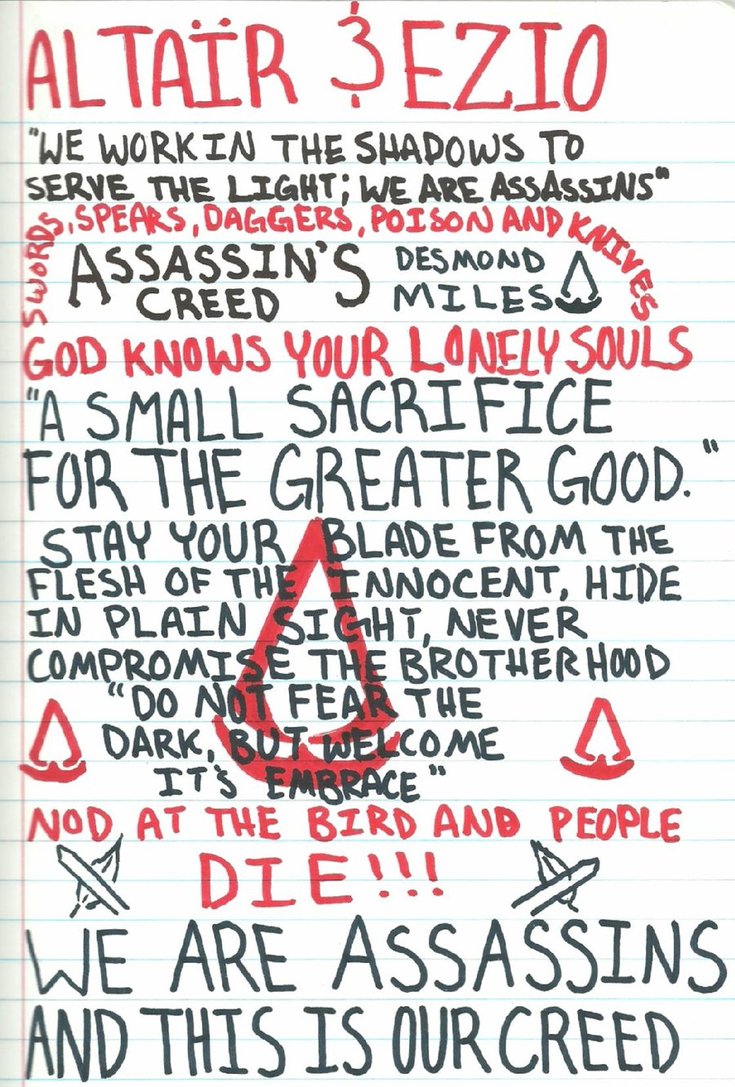 ALTAÏR & EZIO
"WE WORK IN THE SHADOWS TO
SERVE THE LIGHT; WE ARE ASSASSINS"
SWORDS, SPEARS, DAGGERS, POISON AND KNIVES
ASSASSIN'S
CREED
DESMOND
MILES
GOD KNOWS YOUR LONELY SOULS
"A SMALL SACRIFICE
FOR THE GREATER GOOD."
STAY YOUR BLADE FROM THE
FLESH OF THE INNOCENT, HIDE
IN PLAIN SIGHT, NEVER
COMPROMISE THE BROTHERHOOD
"DO NOT FEAR THE
DARK, BUT WELCOME
IT'S EMBRACE"
NOD AT THE BIRD AND PEOPLE
DIE!!!
WE ARE ASSASSINS
AND THIS IS OUR CREED